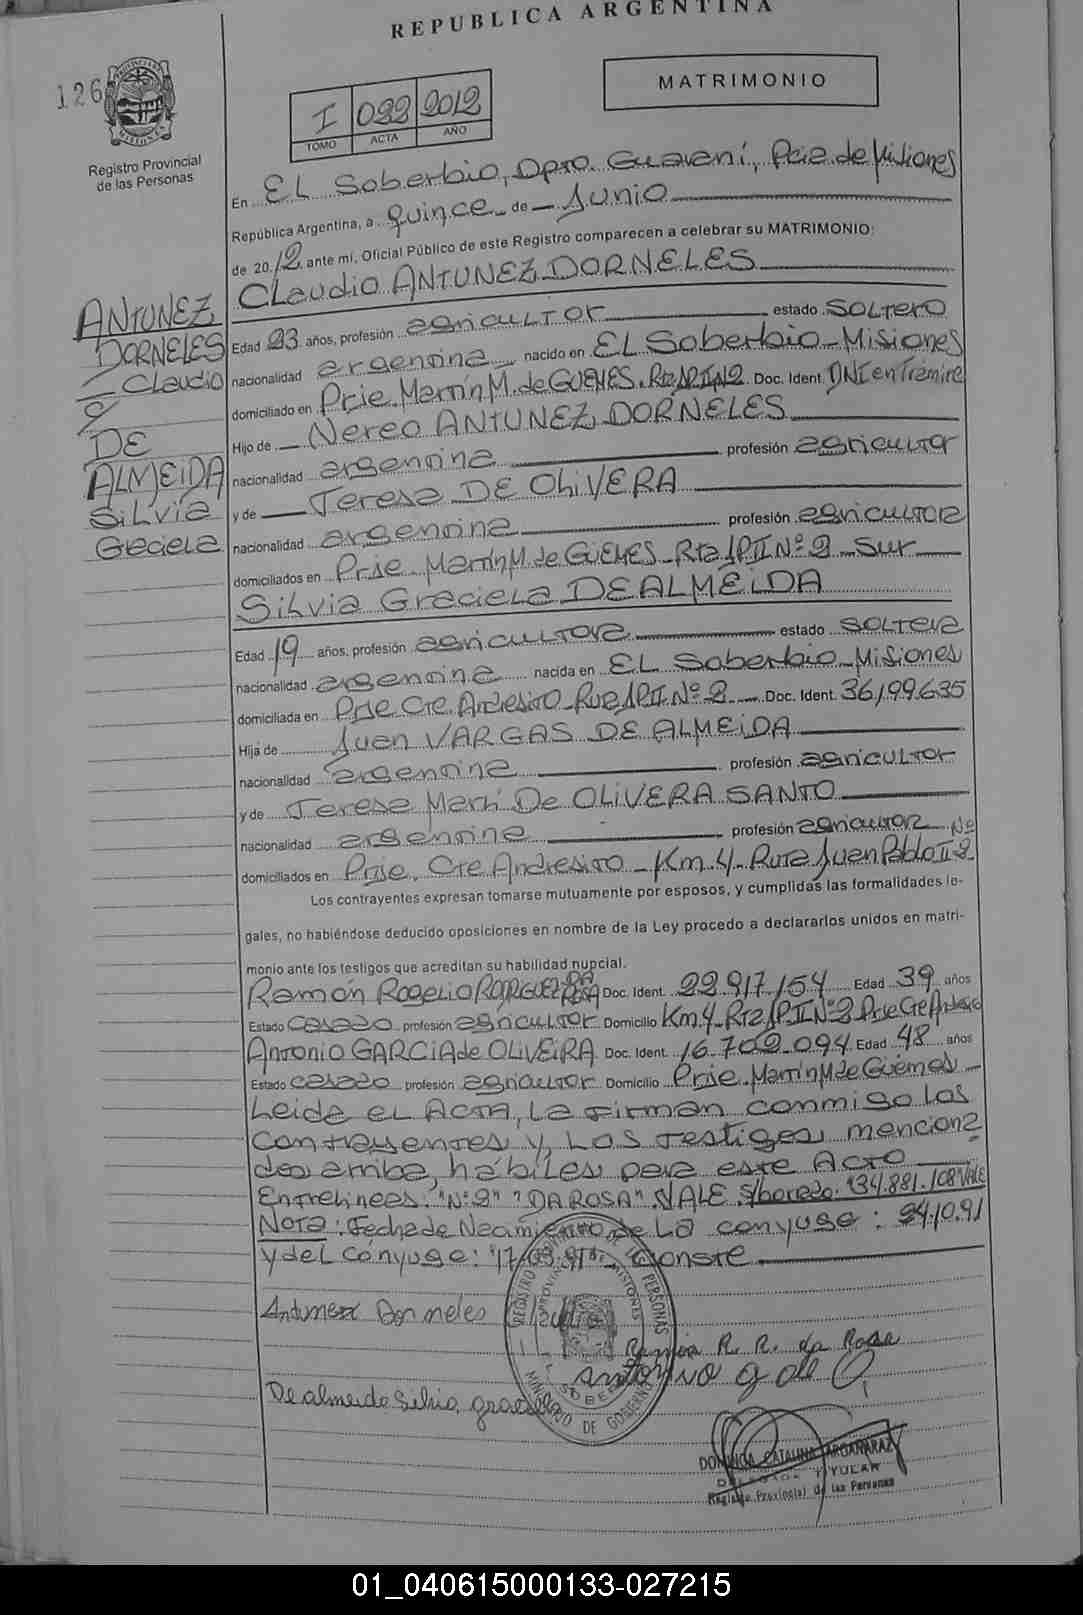 REPUBLICA ARGENTINA
126
Registro Provincial
de las Personas
I 022 2012
TOMO ACTA AÑO
MATRIMONIO
En EL Soberbio, Dpto. Guaraní, Pcia de Misiones
República Argentina, a quince de Junio
de 20 12 ante mí, Oficial Público de este Registro comparecen a celebrar su MATRIMONIO:
Claudio ANTUNEZ DORNELES
ANTUNEZ
DORNELES
Claudio
DE
ALMEIDA
Silvia
Graciela
Edad 23 años, profesión agricultor estado soltero
nacionalidad argentina nacido en EL Soberbio - Misiones
domiciliado en Prje. Martín M. de GÜEMES. Rta JPII Nº2 Doc. Ident. DNI en Trámite
Hijo de Nereo ANTUNEZ DORNELES
nacionalidad argentina profesión agricultor
y de Teresa DE OLIVERA
nacionalidad argentina profesión agricultora
domiciliados en Prje. Martín M. de GÜEMES - Rta JPII Nº 2 Sur
Silvia Graciela DE ALMEIDA
Edad 19 años, profesión agricultora estado soltera
nacionalidad argentina nacida en EL Soberbio - Misiones
domiciliada en Prje Cte. Andresito - Ruta JPII Nº 2 Doc. Ident. 36.199.635
Hija de Juan VARGAS DE ALMEIDA
nacionalidad argentina profesión agricultor
y de Teresa Marli De OLIVERA SANTO
nacionalidad argentina profesión agricultora Nº
domiciliados en Prje. Cte Andresito - Km. 4 - Ruta Juan Pablo II 2
Los contrayentes expresan tomarse mutuamente por esposos, y cumplidas las formalidades le-
gales, no habiéndose deducido oposiciones en nombre de la Ley procedo a declararlos unidos en matri-
monio ante los testigos que acreditan su habilidad nupcial.
Ramón Rogelio RODRIGUEZ DA ROSA Doc. Ident. 22.917.154 Edad 39 años
Estado casado profesión agricultor Domicilio Km. 4 - Rta JPII Nº2 Prje Cte Andresito
Antonio GARCIA de OLIVEIRA Doc. Ident. 16.702.094 Edad 48 años
Estado casado profesión agricultor Domicilio Prje. Martín M de Güemes
Leida el Acta, la firman conmigo los
contrayentes y los testigos menciona
dos arriba, hábiles para este Acto
Entrelineas: "Nº2" "DA ROSA" VALE. S/borrado: "34.881.108" Vale
Nota: Fecha de Nacimiento de La conyuge: 24.10.91
y del Cónyuge: "17/03/91" Conste
Antunez Dorneles Claudio
Ramon R. R. da Rosa
antonio g de O
De almeida Silvia graciela
REGISTRO PROVINCIAL DE LAS PERSONAS
PROVINCIA DE MISIONES
MINISTERIO DE GOBIERNO
DOMINGA CATALINA ARGAÑARAZ
DELEGADA TITULAR
Registro Provincial de las Personas
01_040615000133-027215